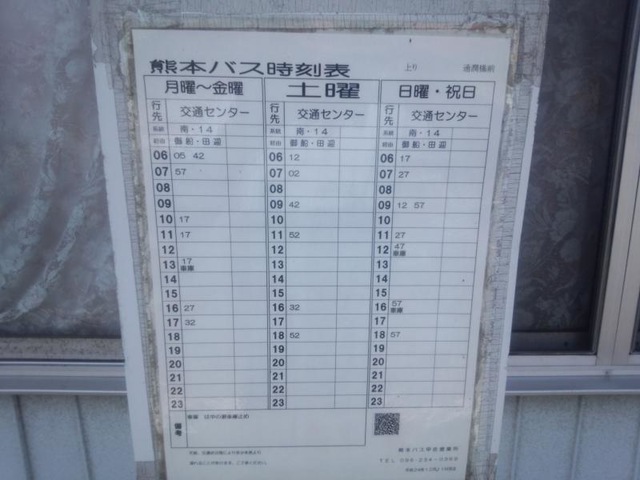 熊本バス時刻表 上り 通潤橋前
月曜～金曜 土曜 日曜・祝日
行先 交通センター 行先 交通センター 行先 交通センター
系統 南・14 系統 南・14 系統 南・14
経由 御船・田迎 経由 御船・田迎 経由 御船・田迎
06 05 42 06 12 06 17
07 57 07 02 07 27
08 08 08
09 09 42 09 12 57
10 17 10 10
11 17 11 52 11 27
12 12 12 47 車庫
13 17 車庫 13 13
14 14 14
15 15 15
16 27 16 32 16 57 車庫
17 32 17 17
18 18 52 18 57
19 19 19
20 20 20
21 21 21
22 22 22
23 23 23
備考
熊本バス甲佐営業所